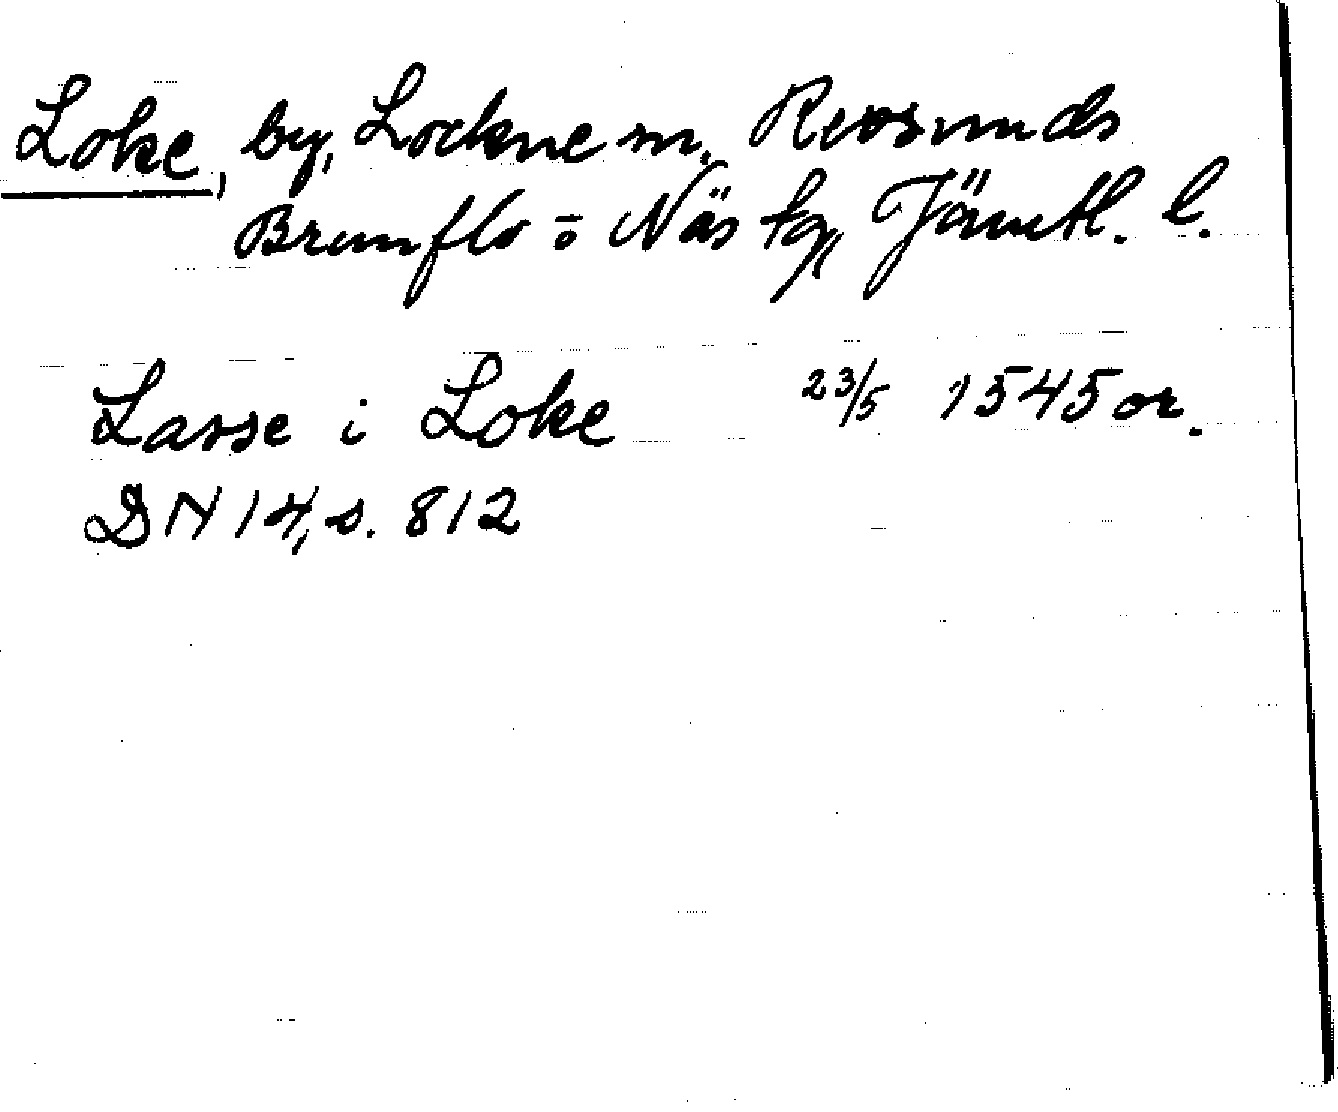 Loke, by, Lockne sn. Revsunds
Brunflo o Näs tg, Jämtl. l.
Lasse i Loke 23/5 1545 or.
DN 14, s. 812